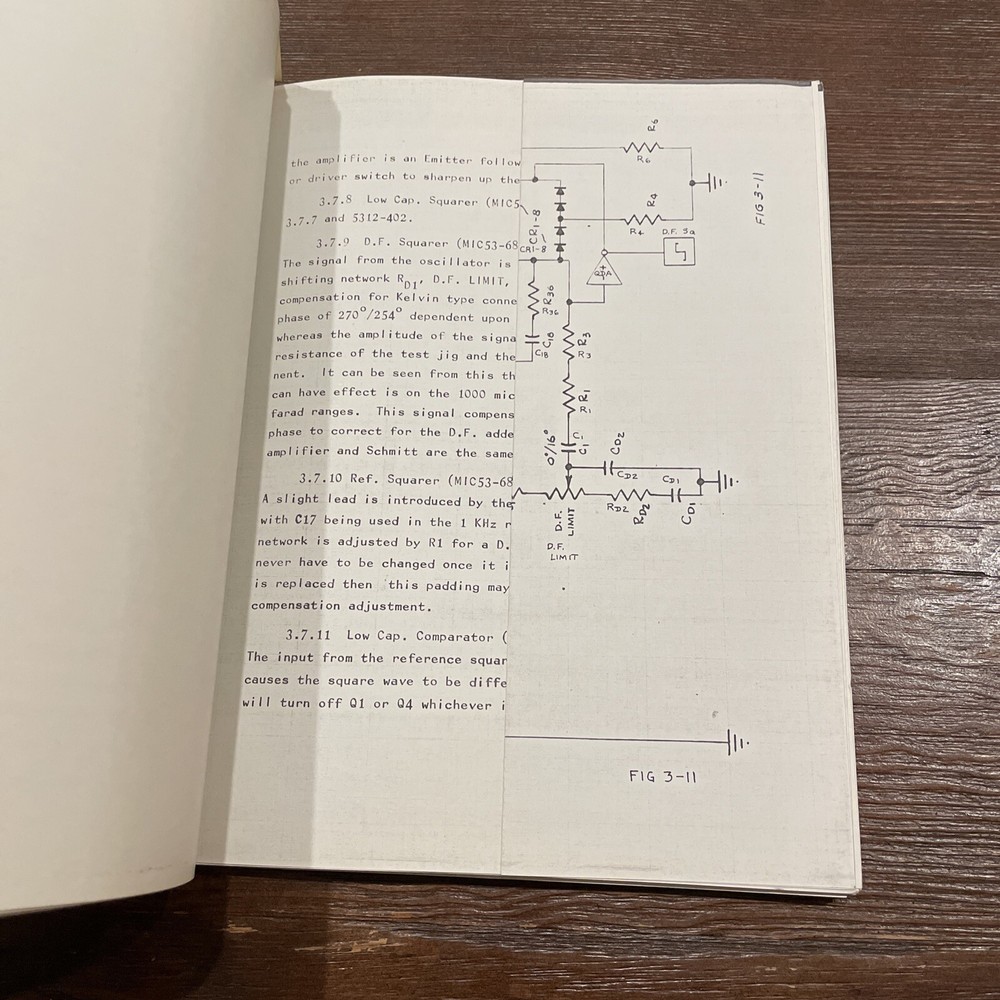 the amplifier is an Emitter follow
or driver switch to sharpen up the
3.7.8 Low Cap. Squarer (MIC5
3.7.7 and 5312-402.
3.7.9 D.F. Squarer (MIC53-68
The signal from the oscillator is
shifting network RD1, D.F. LIMIT,
compensation for Kelvin type conne
phase of 270°/254° dependent upon
whereas the amplitude of the signa
resistance of the test jig and the
nent. It can be seen from this th
can have effect is on the 1000 mic
farad ranges. This signal compens
phase to correct for the D.F. adde
amplifier and Schmitt are the same
3.7.10 Ref. Squarer (MIC53-68
A slight lead is introduced by the
with C17 being used in the 1 KHz r
network is adjusted by R1 for a D.
never have to be changed once it i
is replaced then this padding may
compensation adjustment.
3.7.11 Low Cap. Comparator (
The input from the reference squar
causes the square wave to be diffe
will turn off Q1 or Q4 whichever i
R6
R6
R4
R4
D.F. Sq
CR1-8
CR1-8
QDA
R36
R36
C18
C18
R3
R3
R1
R1
0°/16°
C1
C1
CD2
CD2
CD1
CD1
RD2
RD2
D.F.
LIMIT
D.F.
LIMIT
FIG 3-11
FIG 3-11